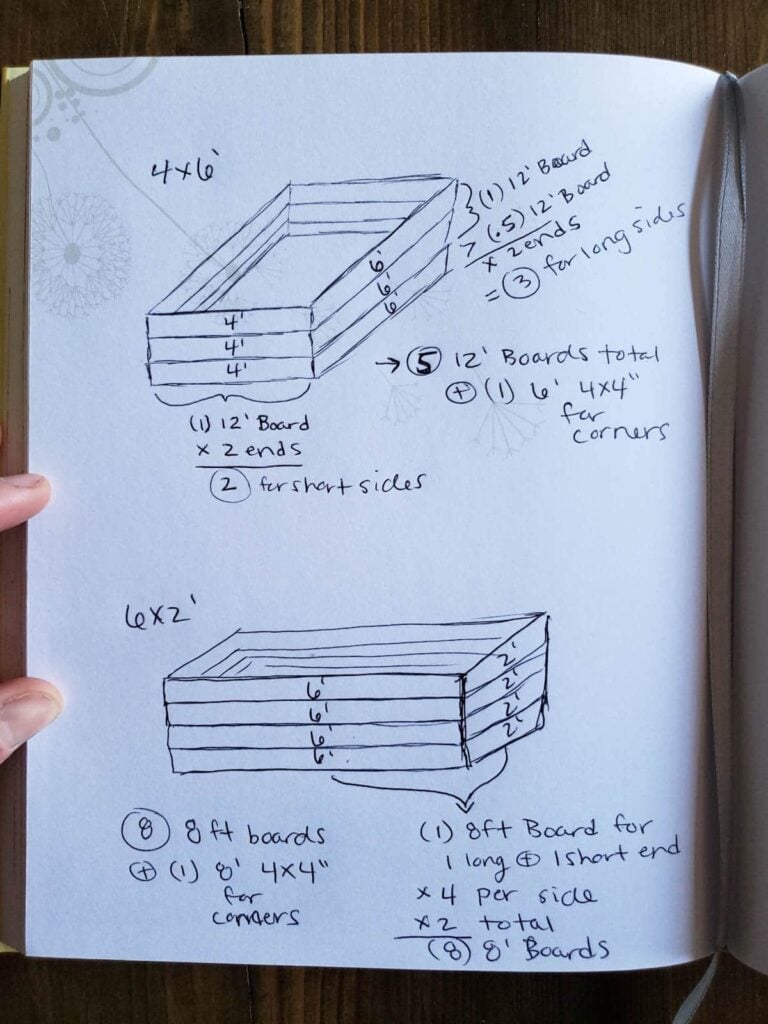 4x6'
(1) 12' Board
(.5) 12' Board
x 2 ends
= 3 for long sides
6'
6'
6'
4'
4'
4'
→ 5 12' Boards total
+ (1) 6' 4x4"
for
corners
(1) 12' Board
x 2 ends
2 for short sides
6x2'
2'
2'
2'
2'
6'
6'
6'
6'
8 8ft boards
+ (1) 8' 4x4"
for
corners
(1) 8ft Board for
1 long + 1 short end
x 4 per side
x 2 total
(8) 8' Boards